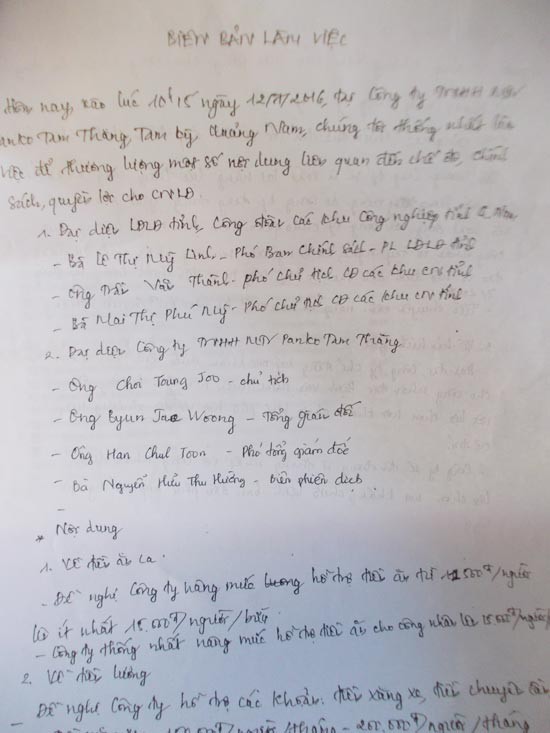 BIÊN BẢN LÀM VIỆC
Hôm nay, vào lúc 10h15 ngày 12/7/2016, tại Công ty TNHH MTV
Panko Tam Thăng, Tam Kỳ, Quảng Nam, chúng tôi thống nhất làm
việc để thương lượng một số nội dung liên quan đến chế độ, chính
sách, quyền lợi cho CNLĐ.
1. Đại diện LĐLĐ tỉnh, Công đoàn các khu công nghiệp tỉnh Q. Nam
- Bà Lê Thị Mỹ Linh - Phó Ban Chính sách - PL LĐLĐ tỉnh
- Ông Trần Văn Thành - phó chủ tịch CĐ các khu CN tỉnh
- Bà Mai Thị Phú Mỹ - Phó chủ tịch CĐ các khu CN tỉnh
2. Đại diện Công ty TNHH MTV Panko Tam Thăng
- Ông Choi Joung Joo - chủ tịch
- Ông Byun Jae Woong - Tổng giám đốc
- Ông Han Chul Joon - Phó tổng giám đốc
- Bà Nguyễn Hiểu Thu Hường - Biên phiên dịch
-
* Nội dung
1. Về tiền ăn ca.
- Đề nghị Công ty nâng mức hỗ trợ tiền ăn từ 12.500đ/người
là ít nhất 15.000đ/người/bữa
- Công ty thống nhất nâng mức hỗ trợ tiền ăn cho công nhân là 15.000đ/người/
2. Về tiền lương
- Đề nghị Công ty hỗ trợ các khoản: tiền xăng xe, tiền chuyên cần
100.000đ/người/tháng - 200.000đ/người/tháng